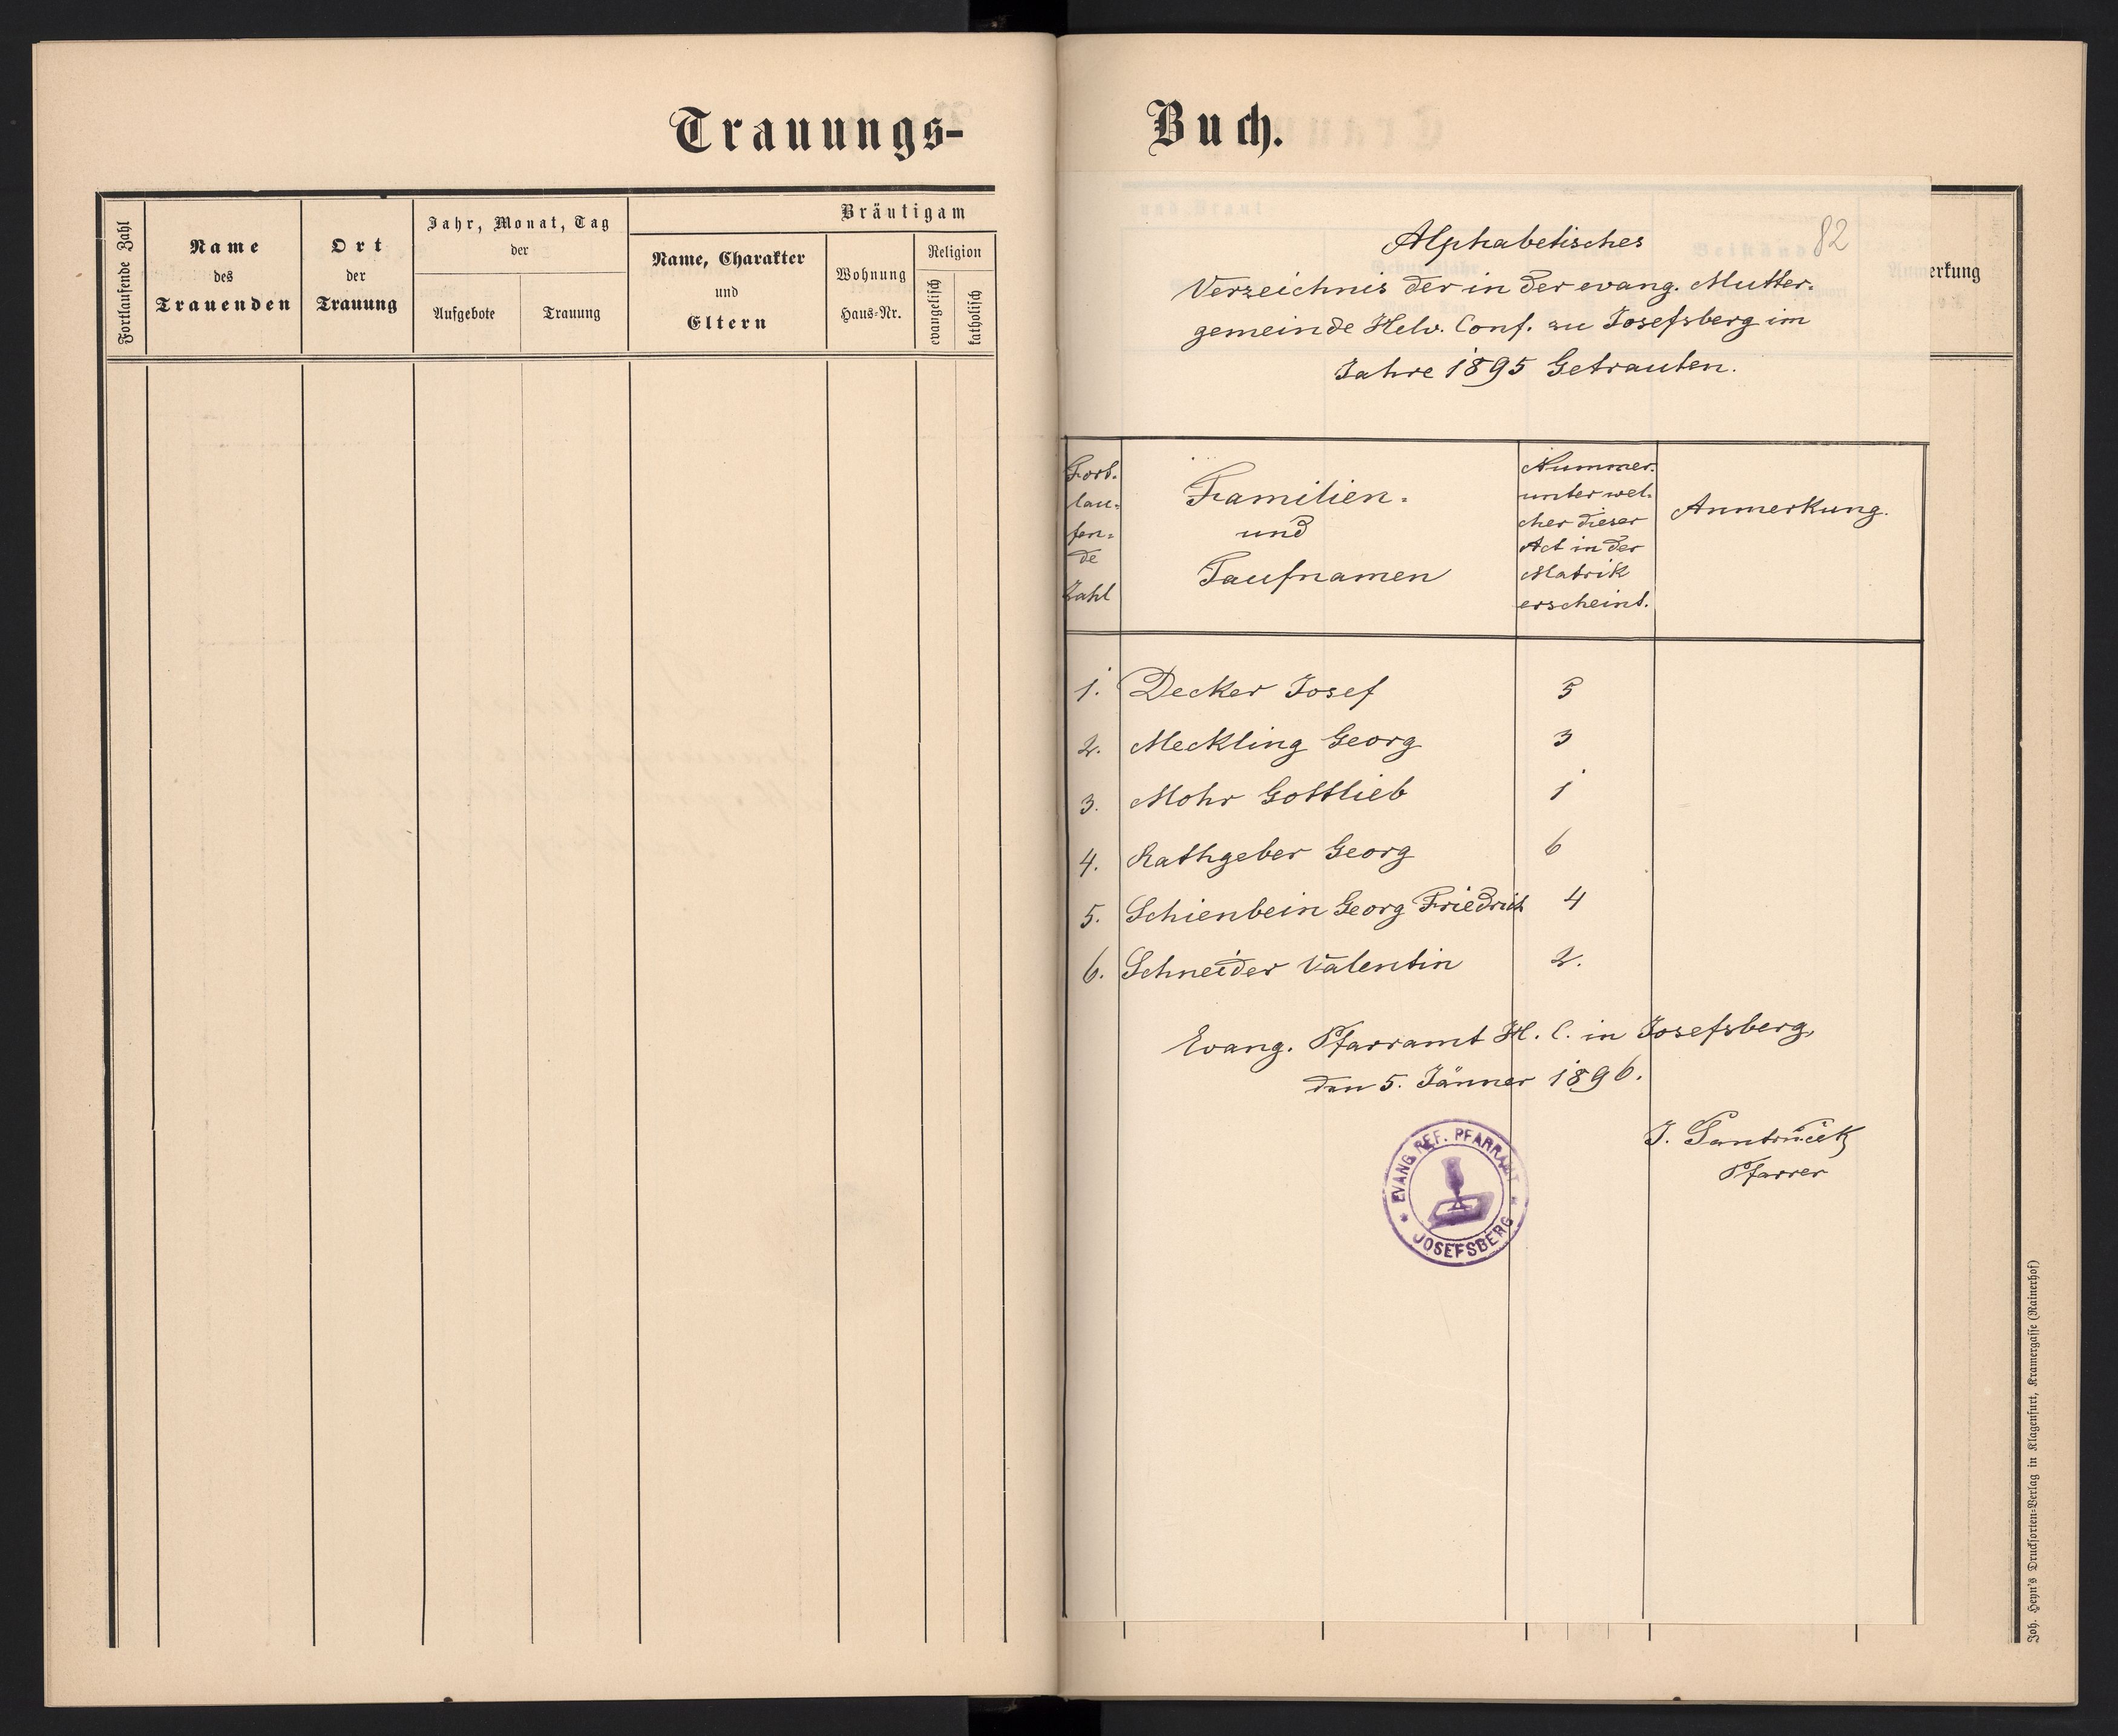 Trauungs-
Fortlaufende Zahl
Name
des
Trauenden
Ort
der
Trauung
Jahr, Monat, Tag
der
Aufgebote
Trauung
Bräutigam
Name, Charakter
und
Eltern
Wohnung
Haus-Nr.
Religion
evangelisch
katholisch
Buch.
82
Alphabetisches
Verzeichnis der in der evang. Mutter-
gemeinde Helv. Conf. zu Josefsberg im
Jahre 1895 Getrauten.
erkung
Fort-
lau-
fen-
de
Zahl
Familien-
und
Taufnamen
Nummer
unter wel-
cher dieser
Act in der
Matrik
erscheint.
Anmerkung.
1. Decker Josef 5
2. Meckling Georg 3
3. Mohr Gottlieb 1
4. Rathgeber Georg 6
5. Schienbein Georg Friedrich 4
6. Schneider Valentin 2.
Evang. Pfarramt H. C. in Josefsberg,
den 5. Jänner 1896.
J.
Pfarrer
EVANG. REF. PFARRAMT
* JOSEFSBERG *
Joh. Heyn's Drucksorten-Verlag in Klagenfurt, Kramergasse (Rainerhof)